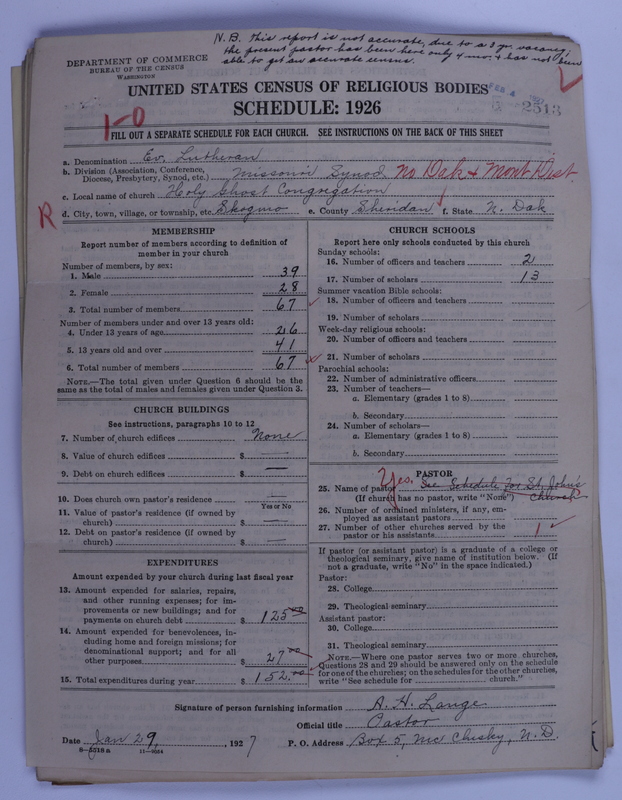 N.B. this report is not accurate, due to a 3 yr. vacancy;
the present pastor has been here only 4 mo. & has not been
able to get an accurate census.
DEPARTMENT OF COMMERCE
BUREAU OF THE CENSUS
WASHINGTON
UNITED STATES CENSUS OF RELIGIOUS BODIES
FEB 4 1927
SCHEDULE: 1926
2513
1-0
FILL OUT A SEPARATE SCHEDULE FOR EACH CHURCH. SEE INSTRUCTIONS ON THE BACK OF THIS SHEET
a. Denomination Ev. Lutheran
b. Division (Association, Conference, Diocese, Presbytery, Synod, etc.) Missouri Synod No Dak & Mont Dist.
c. Local name of church Holy Ghost Congregation
R
d. City, town, village, or township, etc. Skogmo e. County Sheridan f. State N. Dak
MEMBERSHIP
Report number of members according to definition of
member in your church
Number of members, by sex:
1. Male 39
2. Female 28
3. Total number of members 67
Number of members under and over 13 years old:
4. Under 13 years of age 26
5. 13 years old and over 41
6. Total number of members 67
NOTE.—The total given under Question 6 should be the
same as the total of males and females given under Question 3.
CHURCH BUILDINGS
See instructions, paragraphs 10 to 12
7. Number of church edifices None
8. Value of church edifices $ —
9. Debt on church edifices $ —
10. Does church own pastor's residence —
Yes or No
11. Value of pastor's residence (if owned by
church) $ —
12. Debt on pastor's residence (if owned by
church) $ —
EXPENDITURES
Amount expended by your church during last fiscal year
13. Amount expended for salaries, repairs,
and other running expenses; for im-
provements or new buildings; and for
payments on church debt $ 125.00
14. Amount expended for benevolences, in-
cluding home and foreign missions; for
denominational support; and for all
other purposes $ 27.00
15. Total expenditures during year $ 152.00
CHURCH SCHOOLS
Report here only schools conducted by this church
Sunday schools:
16. Number of officers and teachers 2
17. Number of scholars 13
Summer vacation Bible schools:
18. Number of officers and teachers
19. Number of scholars
Week-day religious schools:
20. Number of officers and teachers
21. Number of scholars
Parochial schools:
22. Number of administrative officers
23. Number of teachers—
a. Elementary (grades 1 to 8)
b. Secondary
24. Number of scholars—
a. Elementary (grades 1 to 8)
b. Secondary
PASTOR
Yes.
25. Name of pastor See Schedule for St. John's
(If church has no pastor, write "None") Church
26. Number of ordained ministers, if any, em-
ployed as assistant pastors
27. Number of other churches served by the
pastor or his assistants 1
If pastor (or assistant pastor) is a graduate of a college or
theological seminary, give name of institution below. (If
not a graduate, write "No" in the space indicated.)
Pastor:
28. College
29. Theological seminary
Assistant pastor:
30. College
31. Theological seminary
NOTE.—Where one pastor serves two or more churches,
Questions 28 and 29 should be answered only on the schedule
for one of the churches; on the schedules for the other churches,
write "See schedule for church."
Signature of person furnishing information A. H. Lange
Official title Pastor
Date Jan 29, 1927 P. O. Address Box 5, Mc Clusky, N. D.